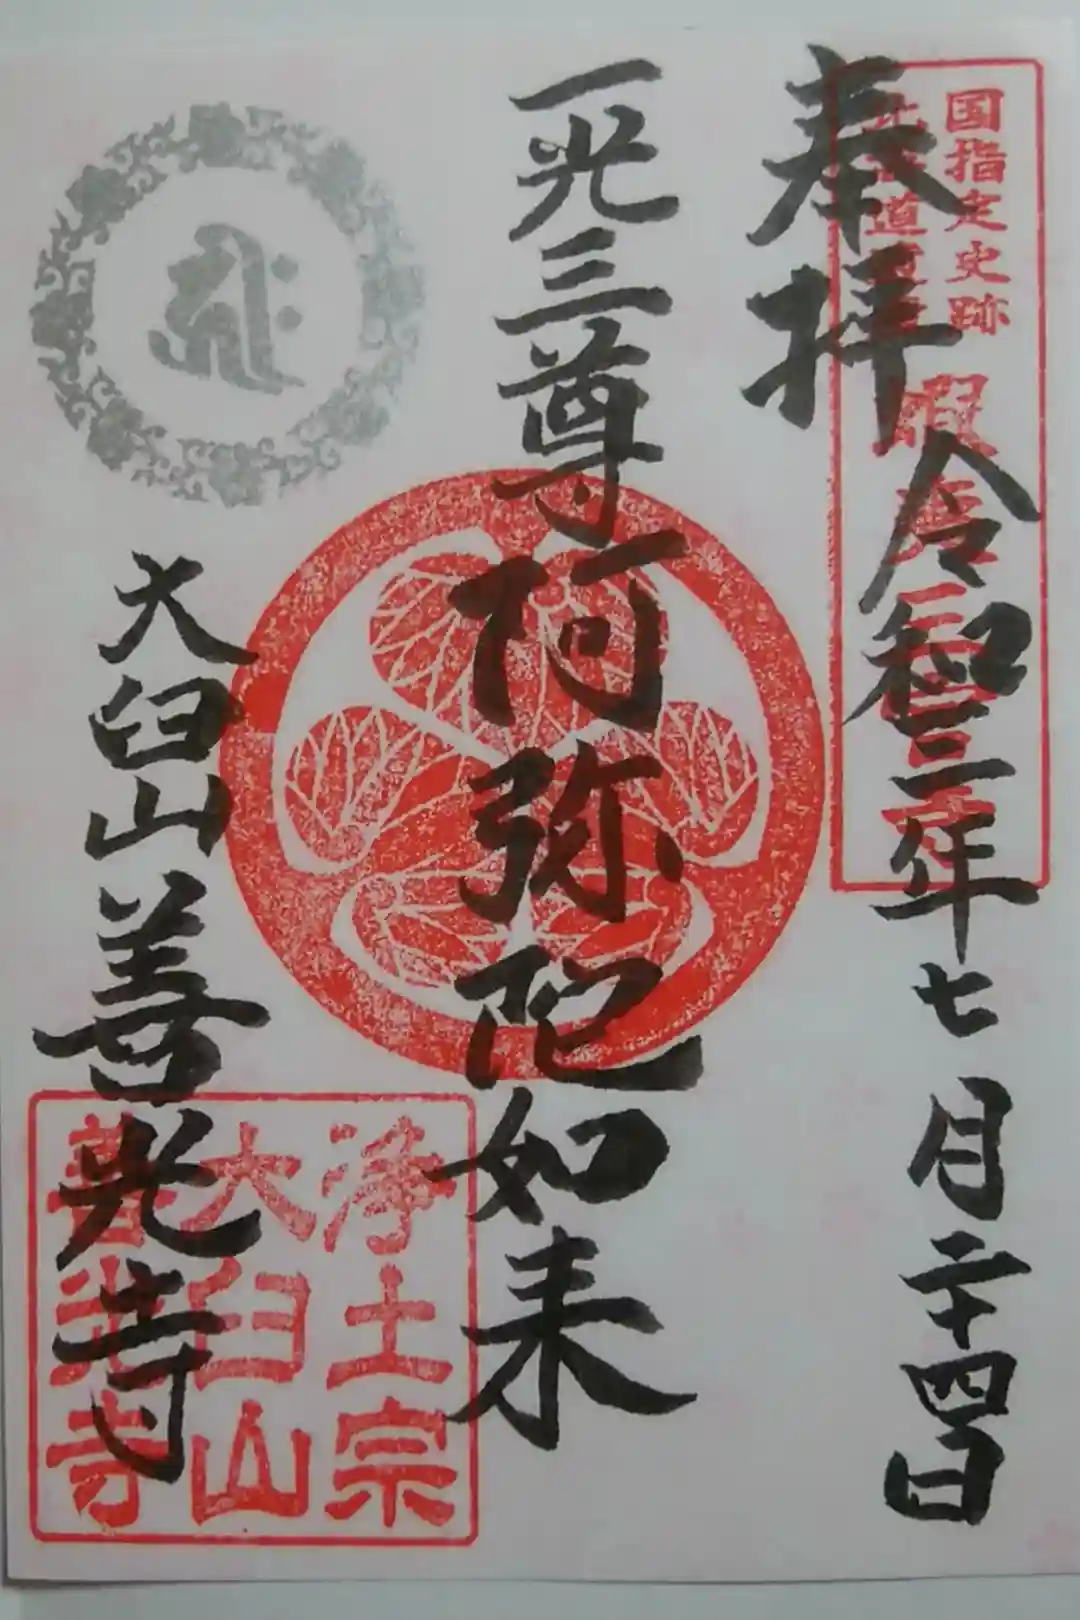 奉拝
国指定史跡
令和三年七月二十四日
一光三尊阿弥陀如来
大臼山善光寺
浄土宗
大臼山
善光寺